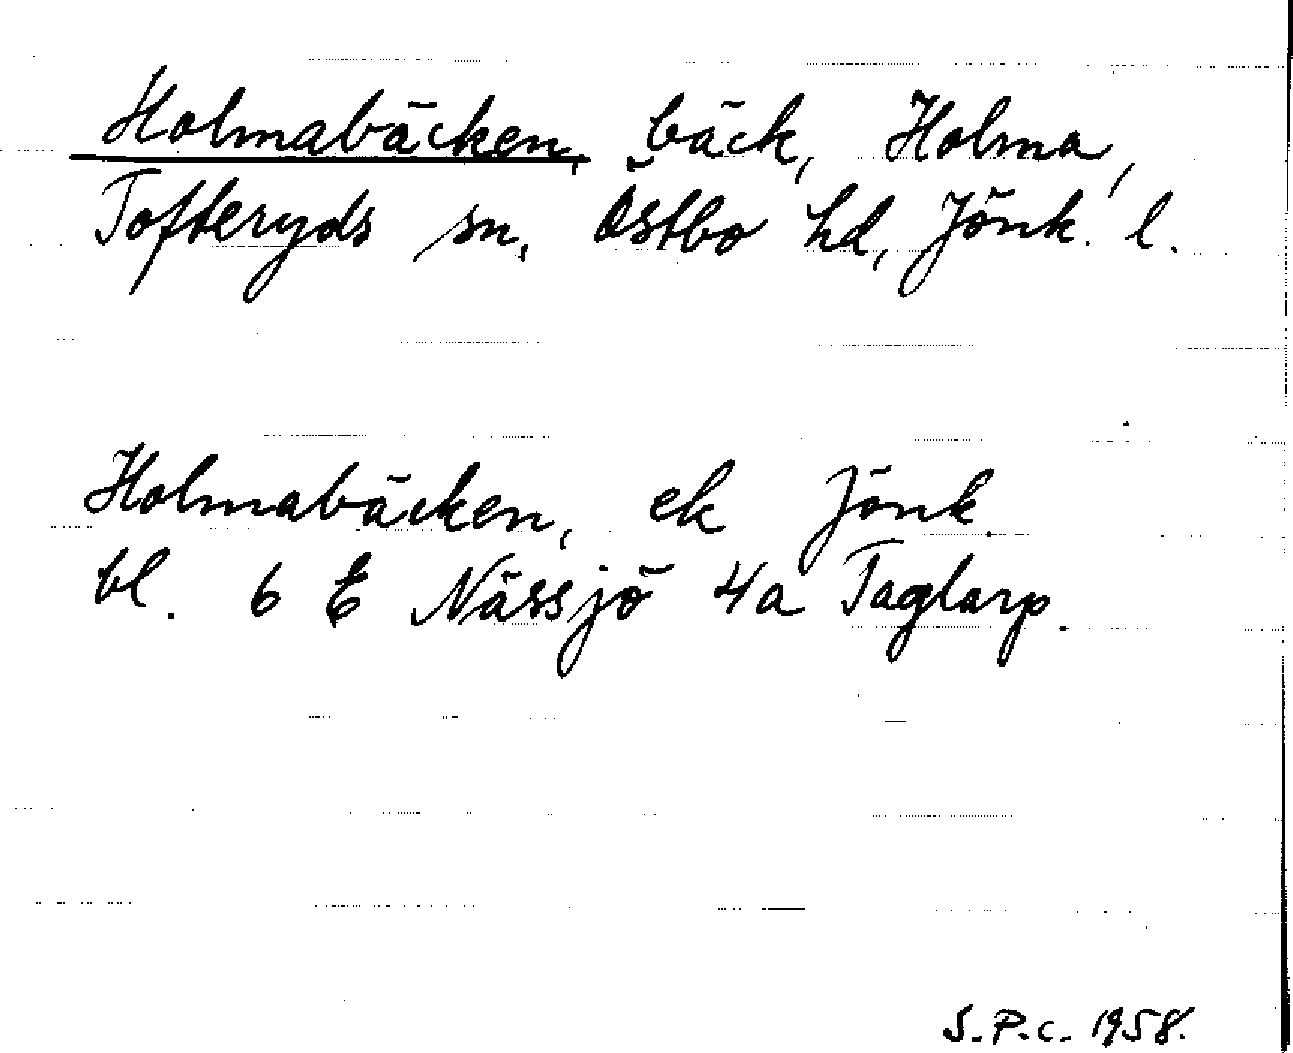 Holmabäcken, bäck, Holma,
Tofteryds sn, Östbo hd, Jönk. l.
Holmabäcken, ek Jönk.
bl. 6 E Nässjö 4a Taglarp.
S.P.C. 1958.